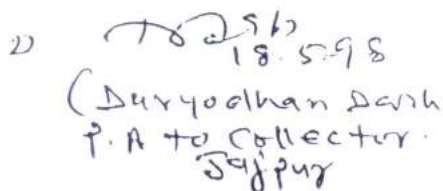 2)
18.5.98
(Duryodhan Dash
P.A to Collector.
Jajpur